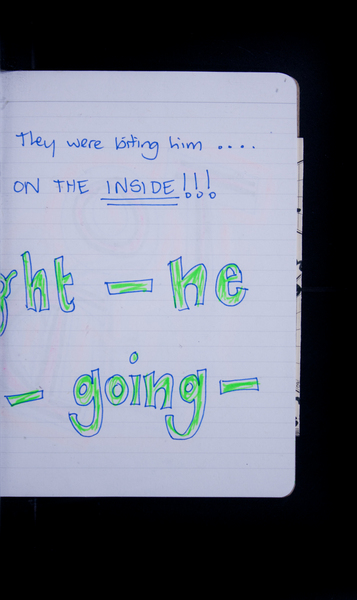 They were biting him ....
ON THE INSIDE!!!
ght - he
- going -